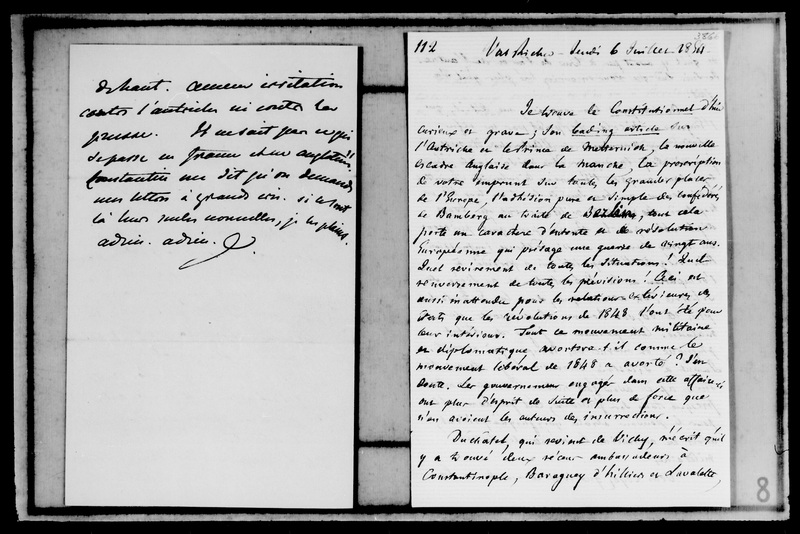 dehaut. aucune irritation
contre l'autriche ni contre la
prusse. Il ne sait pas ce qui
se passe en france et en angleterre.
Constantin me dit qu'on demande
mes lettres à grands cris. si ce sont
là leurs seules nouvelles, je les plains.
adieu. adieu.
386
112 Val Richer Jeudi 6 Juillet 1854
Je trouve le Constitutionnel d'hier
curieux et grave ; son leading article sur
l'Autriche et le Prince de Metternich, la nouvelle
escadre Anglaise dans la Manche, la proscription
de votre emprunt sur toutes les grandes places
de l'Europe, l'adhésion pure et simple des confédérés
de Bamberg au traité de Berlin, tout cela
porte un caractère d'entente et de résolution
Européenne qui présage une guerre de vingt ans.
Quel revirement de toutes les situations ! Quel
renversement de toutes les prévisions ! Ceci est
aussi inattendu pour les relations extérieures des
Etats que les révolutions de 1848 l'ont été pour
leur intérieur. Tout ce mouvement militaire
et diplomatique avortera t-il comme le
mouvement libéral de 1848 a avorté ? J'en
doute. Les gouvernemens engagés dans cette affaire-ci
ont plus d'esprit de suite et plus de force que
n'en avoient les auteurs des insurrections.
Duchâtel, qui revient de Vichy, m'écrit qu'il
y a trouvé deux ambassadeurs à
Constantinople, Baraguey d'hilliers et Lavalette,
8